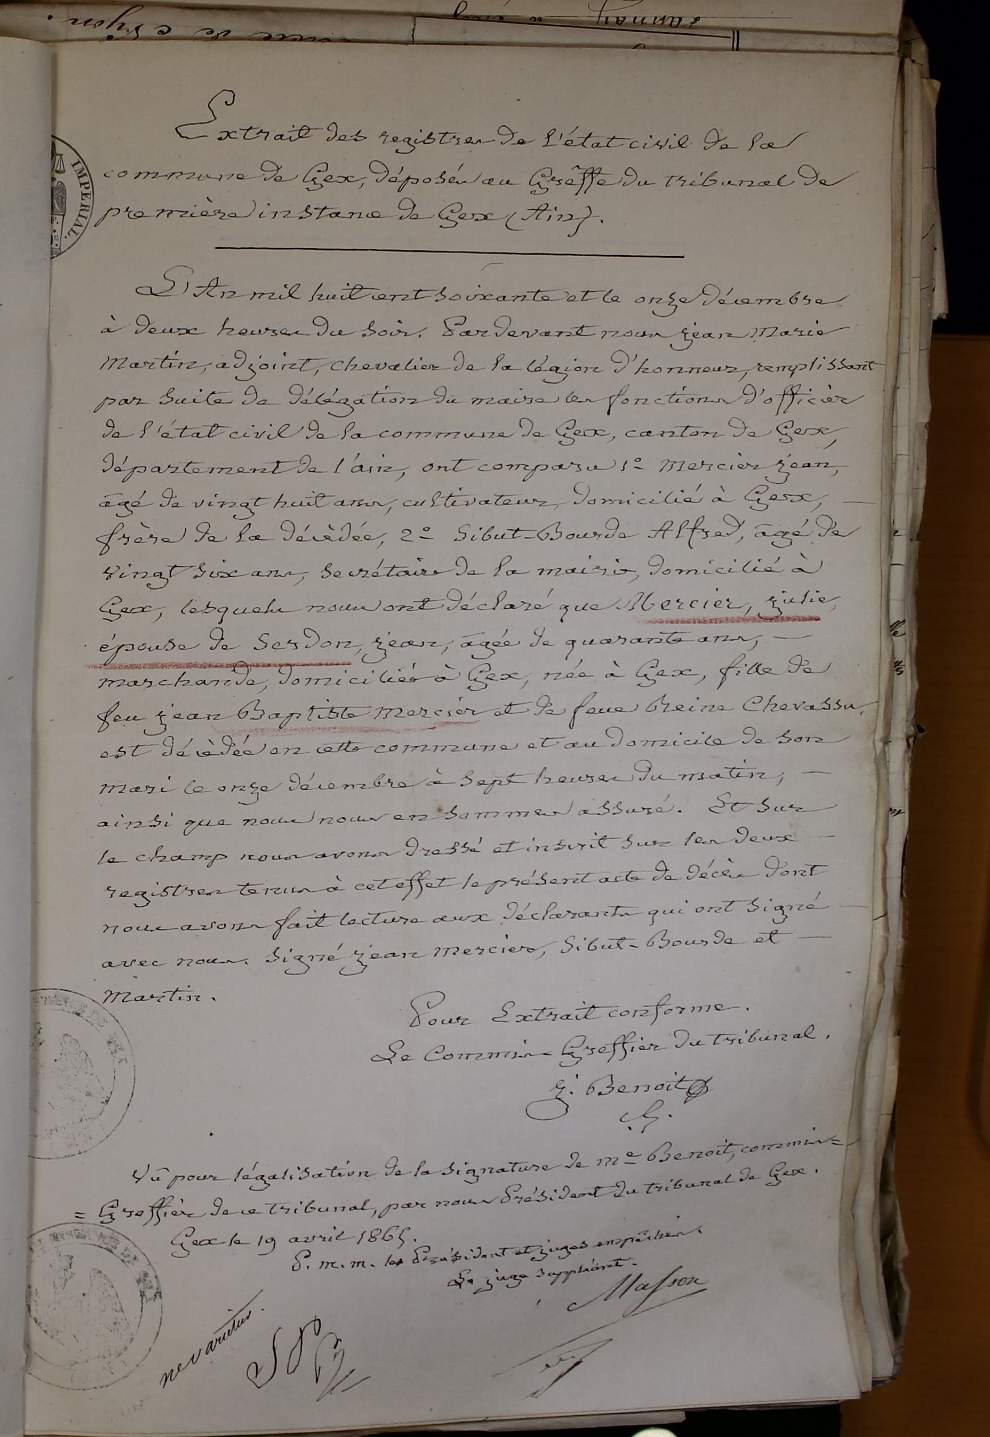 Extrait des registres de l'état civil de la
commune de Gex, déposés au Greffe du tribunal de
première instance de Gex (Ain).
IMPERIAL.
L'An mil huit cent soixante et le onze décembre
à deux heures du soir. Pardevant nous jean Marie
Martin, adjoint, chevalier de la légion d'honneur, remplissant
par suite de délégation du maire les fonctions d'officier
de l'état civil de la commune de Gex, canton de Gex,
département de l'ain, ont comparu 1º Mercier jean,
âgé de vingt huit ans, cultivateur, domicilié à Gex, —
frère de la décèdée, 2º Sibut-Bourde Alfred, âgé de
vingt six ans, secrétaire de la mairie, domicilié à
Gex, lesquels nous ont déclaré que Mercier, julie,
épouse de Serdon, jean, âgée de quarante ans, —
marchande, domiciliée à Gex, née à Gex, fille de
feu jean Baptiste Mercier et de feue Reine Chevassu,
est décèdée en cette commune et au domicile de son
mari le onze décembre à sept heures du matin, —
ainsi que nous nous en sommes assuré. Et sur
le champ nous avons dressé et inscrit sur les deux —
registres tenus à cet effet le présent acte de décès dont
nous avons fait lecture aux déclarants qui ont signé —
avec nous. Signé jean Mercier, Sibut-Bourde et —
Martin.
Pour Extrait conforme.
Le Commis-Greffier du tribunal.
j. Benoit
Vu pour légalisation de la signature de me Benoit, commis=
=Greffier de ce tribunal, par nous Président du tribunal de Gex.
Gex le 19 avril 1865.
P. m. m. les Président et juges empêchés.
Le juge suppléant.
Masson
ne varietur.